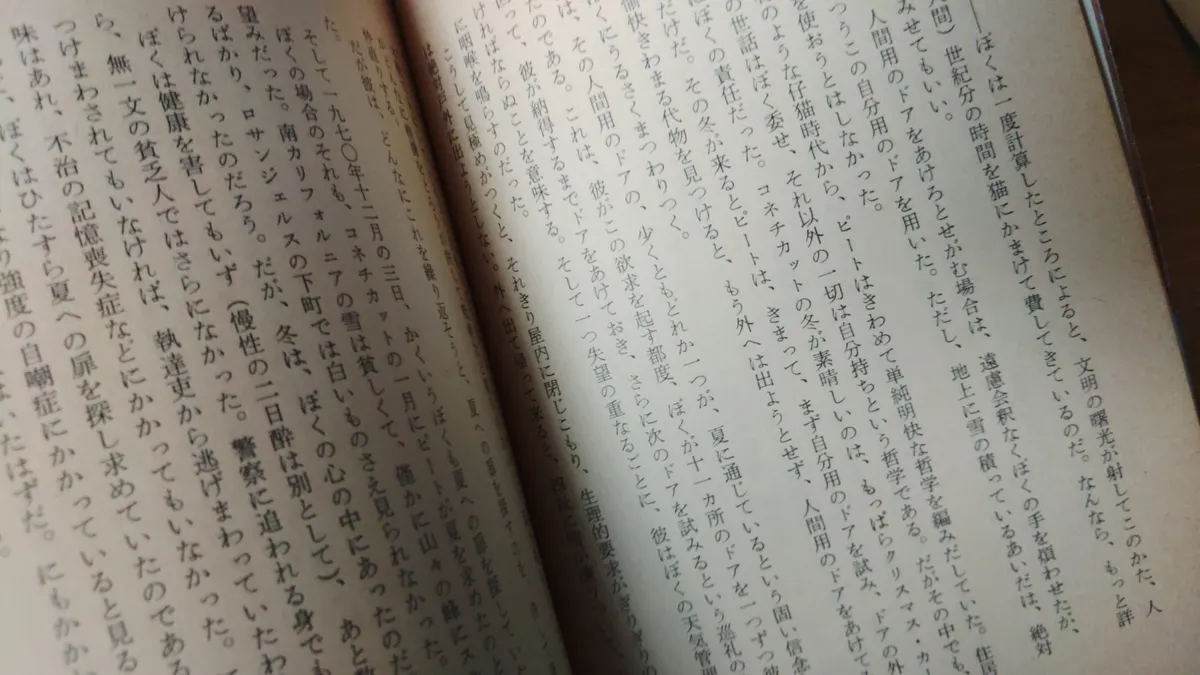 ――ぼくは一度計算したところによると、文明の曙光が射してこのかた、人
間）世紀分の時間を猫にかまけて費してきているのだ。なんなら、もっと詳
みせてもいい。
人間用のドアをあけろとせがむ場合は、遠慮会釈なくぼくの手を煩わせたが、
つうこの自分用のドアを用いた。ただし、地上に雪の積っているあいだは、絶対
を使おうとはしなかった。
のような仔猫時代から、ピートはきわめて単純明快な哲学を編みだしていた。住居
の世話はぼくに委せ、それ以外の一切は自分持ちという哲学である。だがその中でも、
にぼくの責任だった。コネチカットの冬が素晴しいのは、もっぱらクリスマス・カー
だけだ。その冬が来るとピートは、きまって、まず自分用のドアを試み、ドアの外
愉快きわまる代物を見つけると、もう外へは出ようとせず、人間用のドアをあけて
くにうるさくまつわりつく。
は、その人間用のドアの、少くともどれか一つが、夏に通じているという固い信念
たのである。これは、彼がこの欲求を起す都度、ぼくが十一ヵ所のドアを一つずつ彼
って、彼が納得するまでドアをあけておき、さらに次のドアを試みるという巡礼の
ければならぬことを意味する。そして一つ失望の重なるごとに、彼はぼくの天気管理
に咽喉を鳴らすのだった。
こうして見極めがつくと、それきり屋内に閉じこもり、生理的要求がぎりぎりの
は絶対に外に出ようとしない。外へ出て帰って来ると、
だが彼は、どんなにこれを繰り返そうと、夏への扉を探すのを
た。
そして一九七〇年十二月の三日、かくいうぼくも夏への扉を探していた
ぼくの場合のそれも、コネチカットの一月にピートが夏を求めたのと
望みだった。南カリフォルニアの雪は貧しくて、僅かに山々の峰にス
るばかり、ロサンジェルスの下町では白いものさえ見られなかった。
けられなかったのだろう。だが、冬は、ぼくの心の中にあったのだ
ぼくは健康を害してもいず（慢性の二日酔は別として）、あと数
ら、無一文の貧乏人ではさらになかった。警察に追われる身でも
つけまわされてもいなければ、執達吏から逃げまわっていたわ
味はあれ、不治の記憶喪失症などにかかってもいなかった。
ぼくはひたすら夏への扉を探し求めていたのである
り強度の自嘲症にかかっていると見る
はいたはずだ。にもかか